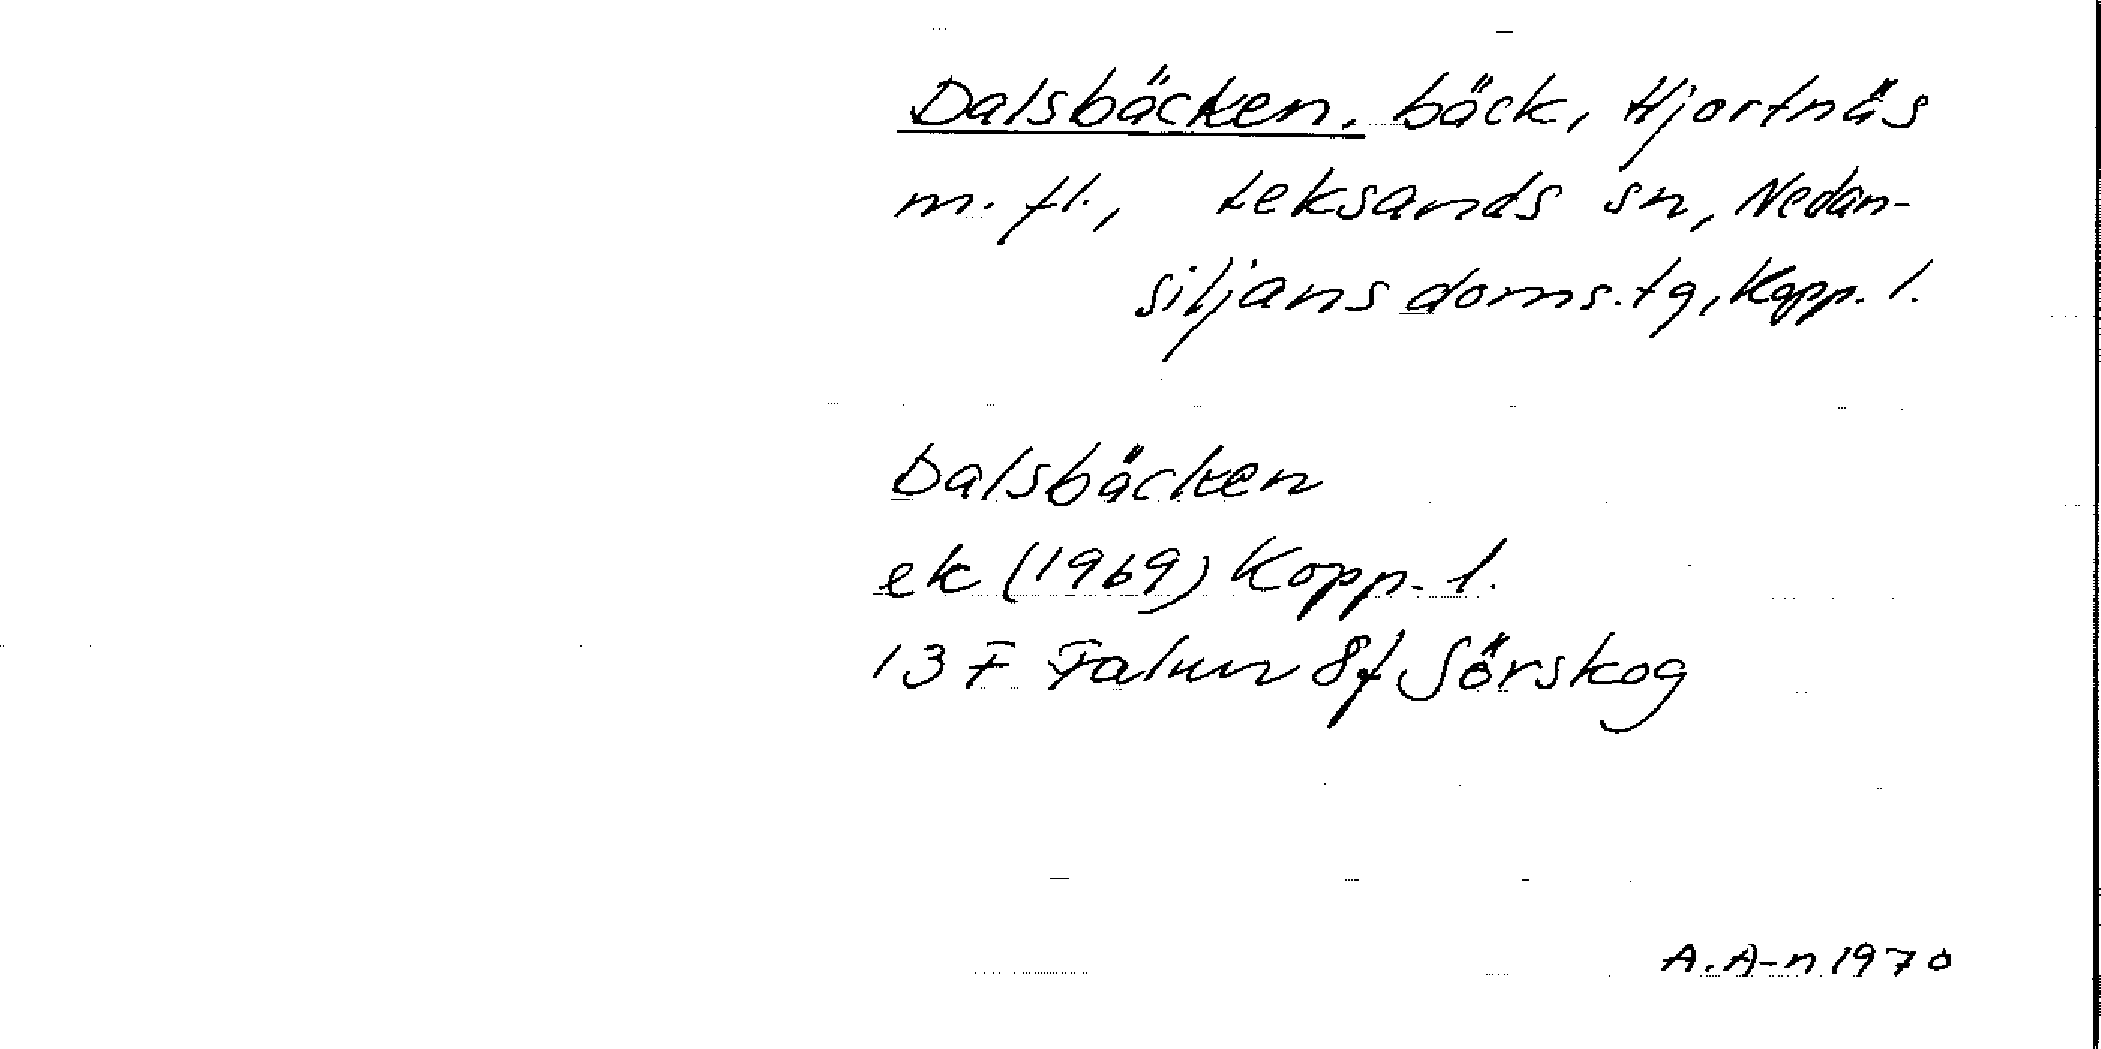 Dalsbäcken. bäck, Hjortnäs
m. fl., Leksands sn, Nedan-
siljans doms.tg, Kopp. l.
Dalsbäcken
ek (1969) Kopp. l.
13 F Falun 8f Sörskog
A. A-n 1970